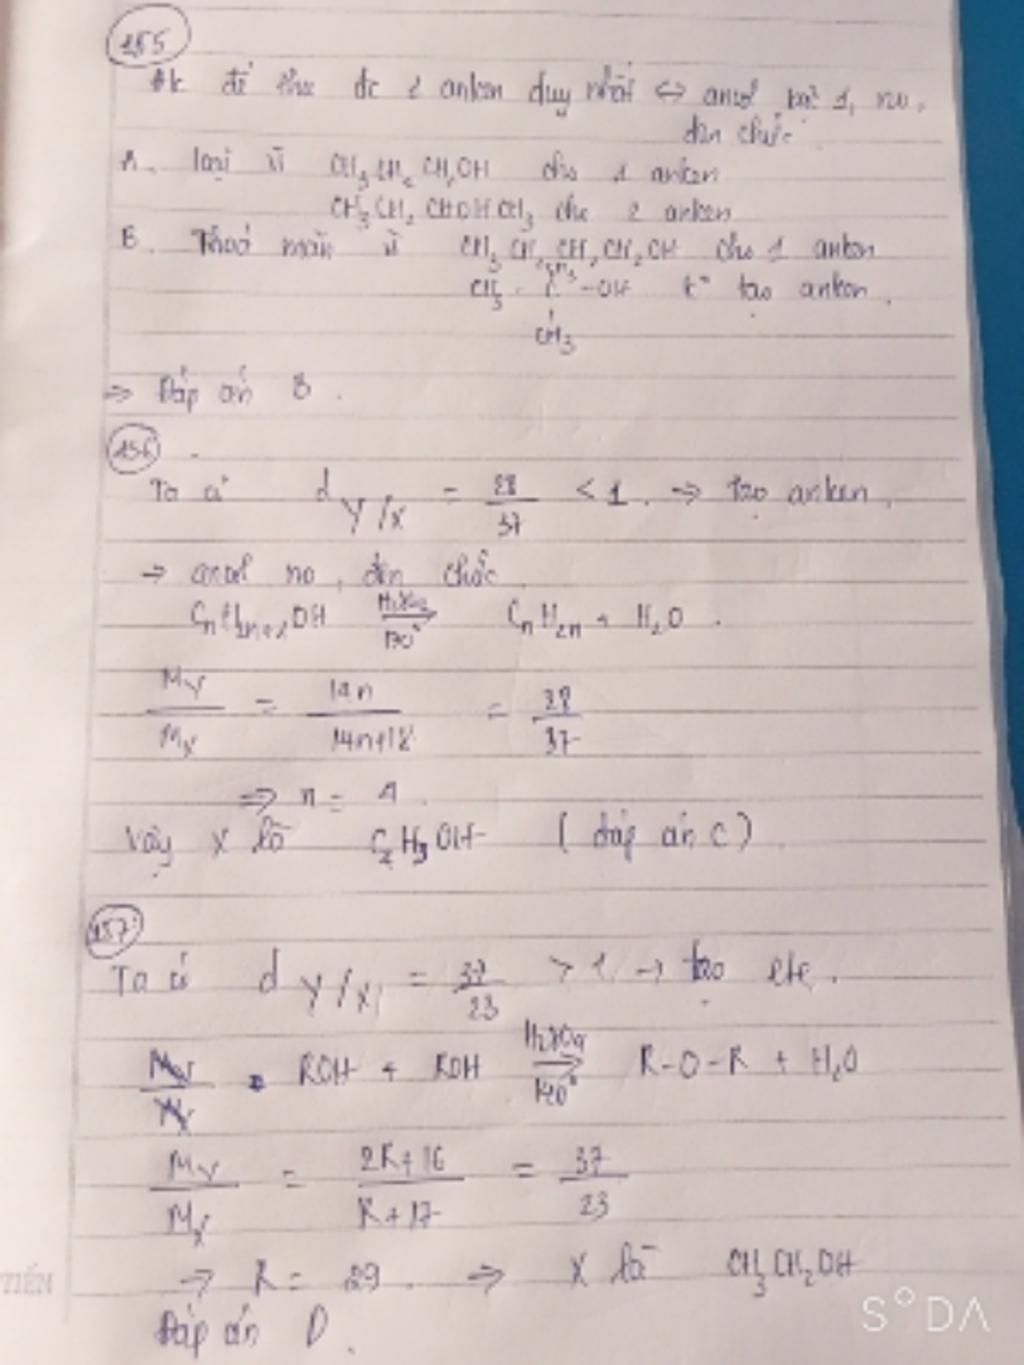 155
Đk để thu đc 1 anken duy nhất ⇔ ancol bậc 1, no,
đơn chức
A. loại vì CH3CH2CH2OH cho 1 anken
CH3CH2CHOHCH3 cho 2 anken
B. Thoả mãn vì CH3CH2CH2CH2OH cho 1 anken
CH3
CH3 - C - OH tạo anken.
CH3
⇒ Đáp án B.
156
Ta có d Y/X = 28/37 < 1. ⇒ tạo anken.
→ ancol no, đơn chức
CnH2n+1OH H2SO4 170° CnH2n + H2O.
MY/MX = 14n/14n+18 = 28/37
⇒ n = 4.
Vậy X là OH (đáp án C)
157
Ta có d Y/X = 37/23 > 1 → tạo ete.
ROH + ROH H2SO4 140° R-O-R + H2O
MY/MX = 2R+16/R+17 = 37/23
⇒ R = 29. ⇒ X là CH3CH2OH
Đáp án D.
TIẾN
SODA